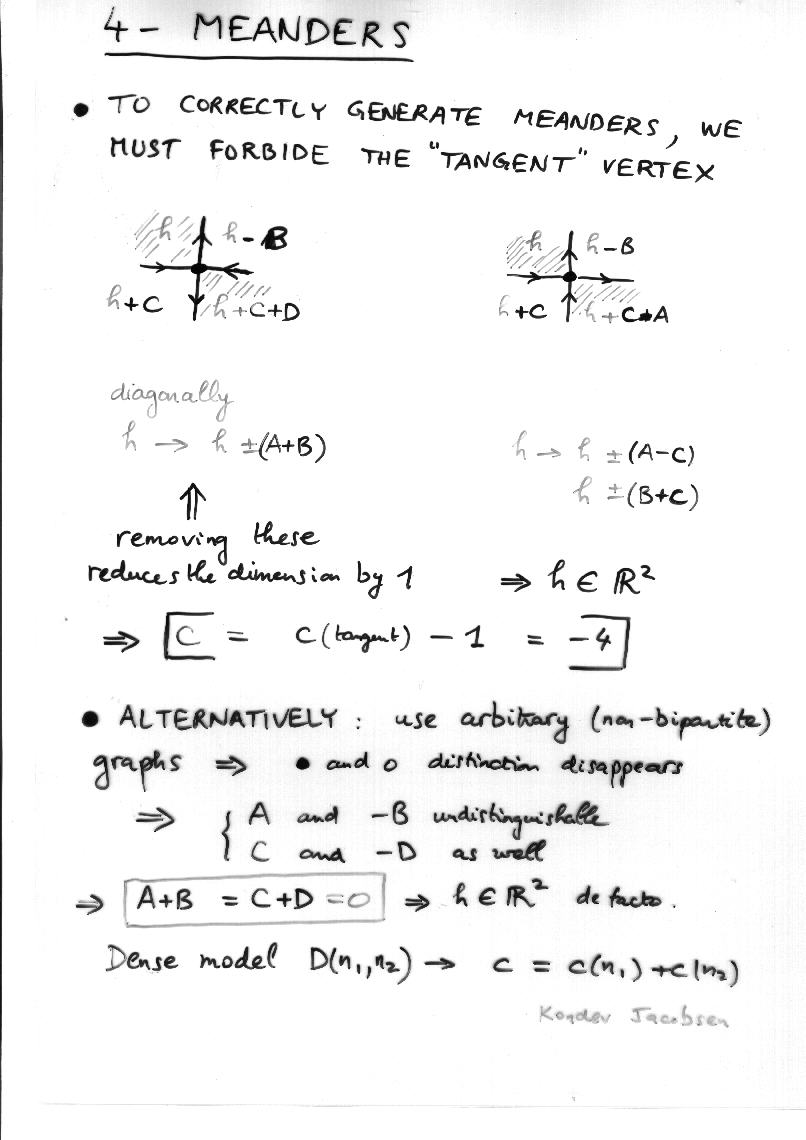 4 - MEANDERS
• TO CORRECTLY GENERATE MEANDERS, WE
MUST FORBIDE THE "TANGENT" VERTEX
h h-B
h+C h+C+D
h h-B
h+C h+C+A
diagonally
h → h ±(A+B)
h → h ±(A-C)
h ±(B+C)
⇑
removing these
reduces the dimension by 1 ⇒ h ∈ ℝ²
⇒ C = C(tangent) - 1 = -4
• ALTERNATIVELY: use arbitrary (non-bipartite)
graphs ⇒ • and o distinction disappears
⇒ { A and -B undistinguishable
C and -D as well
⇒ A+B = C+D = 0 ⇒ h ∈ ℝ² de facto.
Dense model D(n₁,n₂) → c = c(n₁)+c(n₂)
Kondev Jacobsen